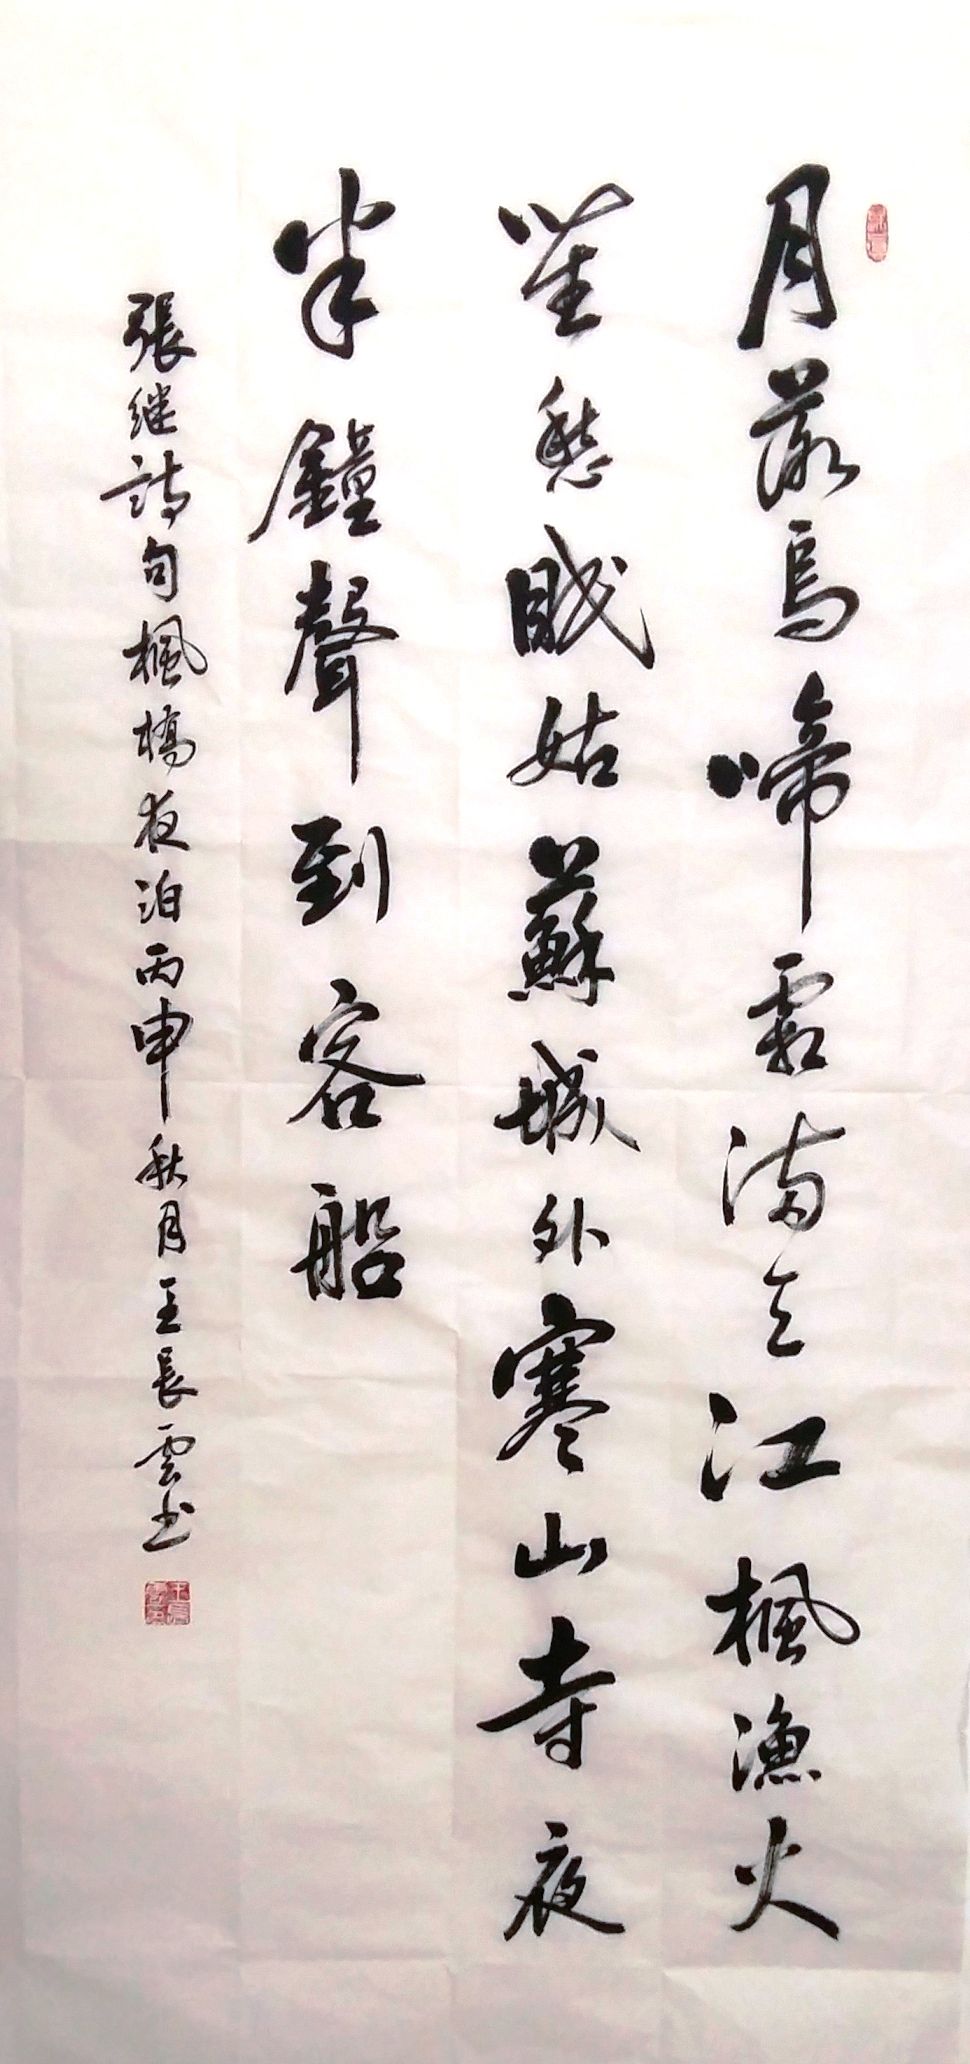 月落烏啼霜滿天江楓漁火
對愁眠姑蘇城外寒山寺夜
半鐘聲到客船
張继詩句楓橋夜泊丙申秋月王長雲书